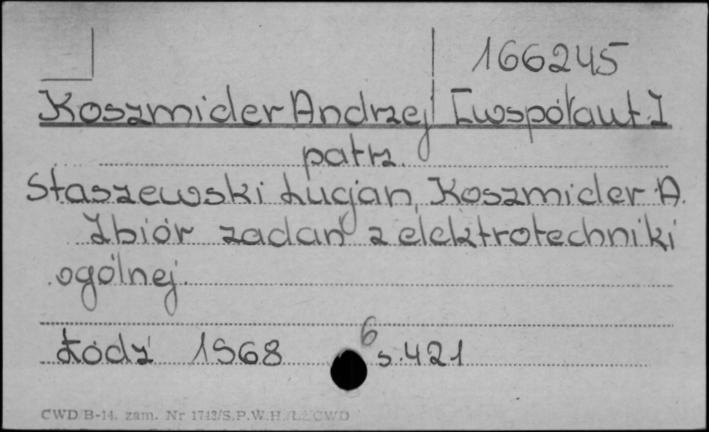 166245
Koszmider Andrzej [współaut.]
patrz.
Staszewski Lucjan, Koszmider A.
Zbiór zadań z elektrotechniki
ogólnej.
Łódź 1968 6 s. 421
CWD/B-14. zam. Nr 1742/S.P.W.H./L. CWD